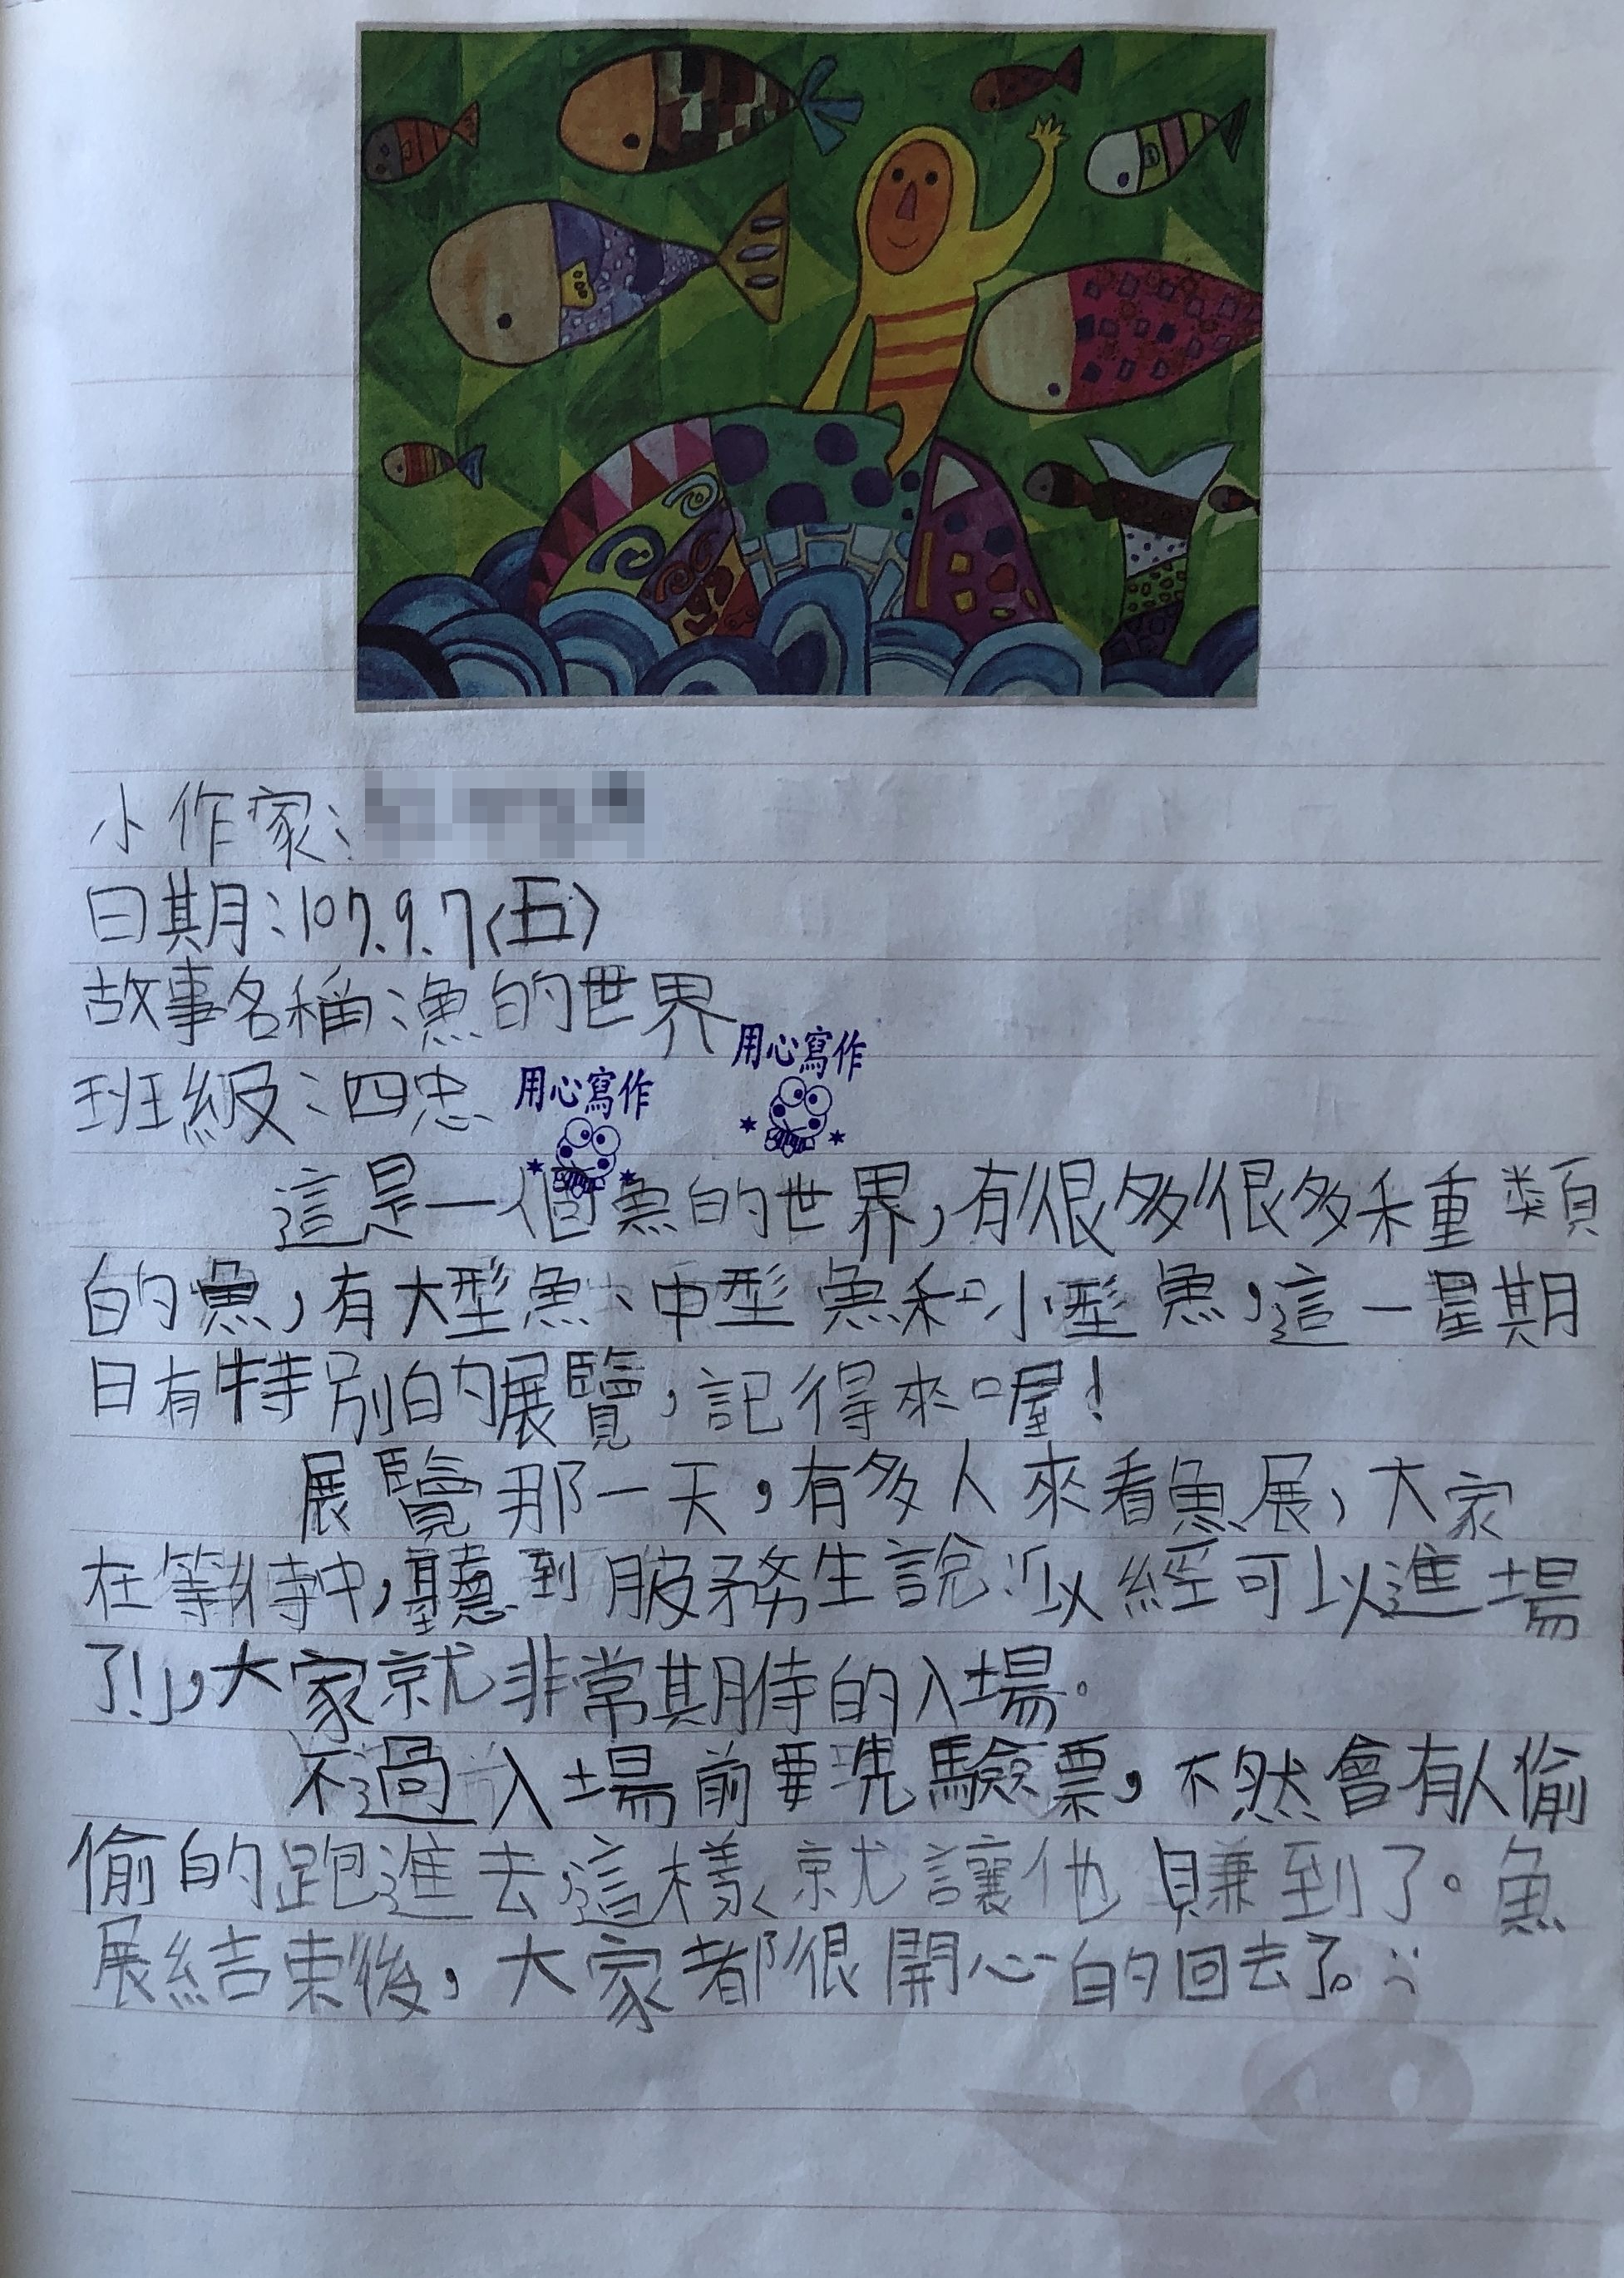 小作家：
日期：107.9.7(五)
故事名稱：漁的世界
用心寫作
班級：四忠
用心寫作
這是一個魚的世界，有很多很多種類
的魚，有大型魚、中型魚和小型魚，這一星期
日有特別的展覽，記得來喔！
展覽那一天，有多人來看魚展，大家
在等待中，聽到服務生說：「以經可以進場
了！」，大家就非常期待的入場。
不過入場前要先驗票，不然會有人偷
偷的跑進去，這樣就讓他賺到了。魚
展結束後，大家都很開心的回去了。